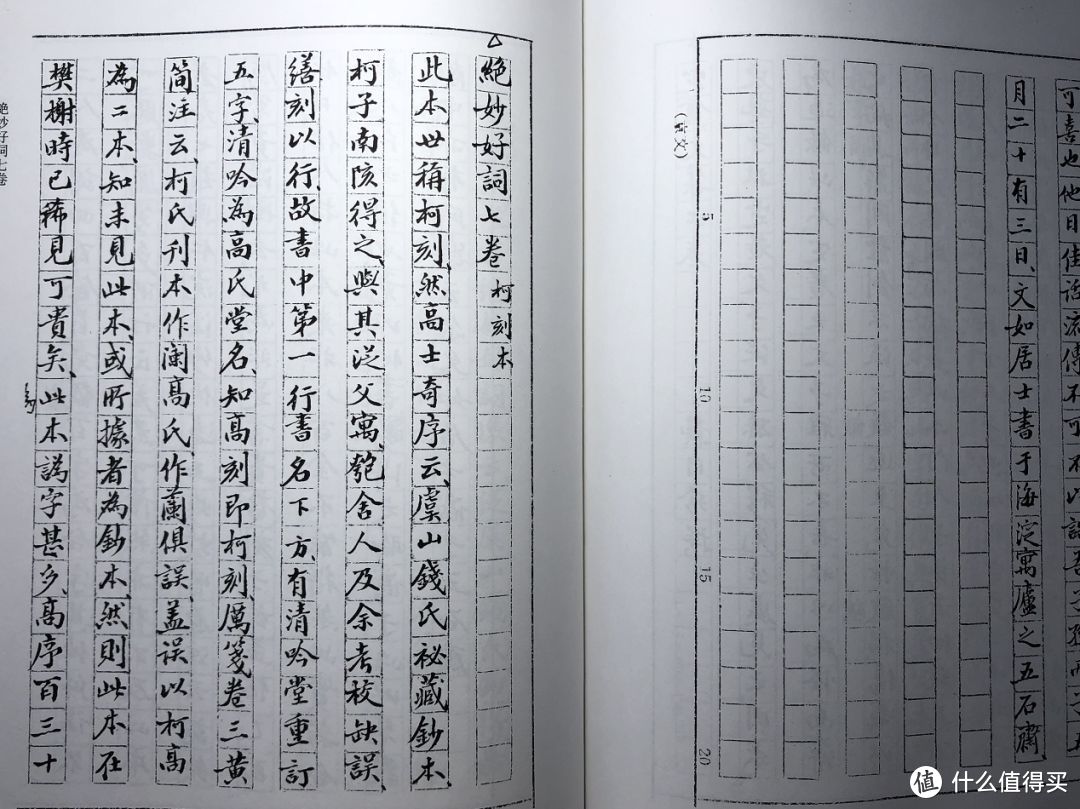 可喜也他日佳話流傳不可不以語吾子孫而子
月二十有三日、文如居士書于海淀寓廬之五石齋
5
10
15
20
絕妙好詞七卷 柯刻本
此本世稱柯刻、然高士奇序云、虞山錢氏祕藏鈔本、
柯子南陔得之、與其從父寓匏舍人及余考校缺誤
繕刻以行、故書中第一行書名下方、有清吟堂重訂
五字、清吟為高氏堂名、知高刻即柯刻、厲箋卷三黄
简注云、柯氏刊本作阑、高氏作蘭俱誤、盖误以柯高
為二本、知未見此本、或所據者為鈔本、然則此本在
樊榭時已稀見可貴矣、此本譌字甚多、高序百三十
絶妙好詞七卷
值 什么值得买